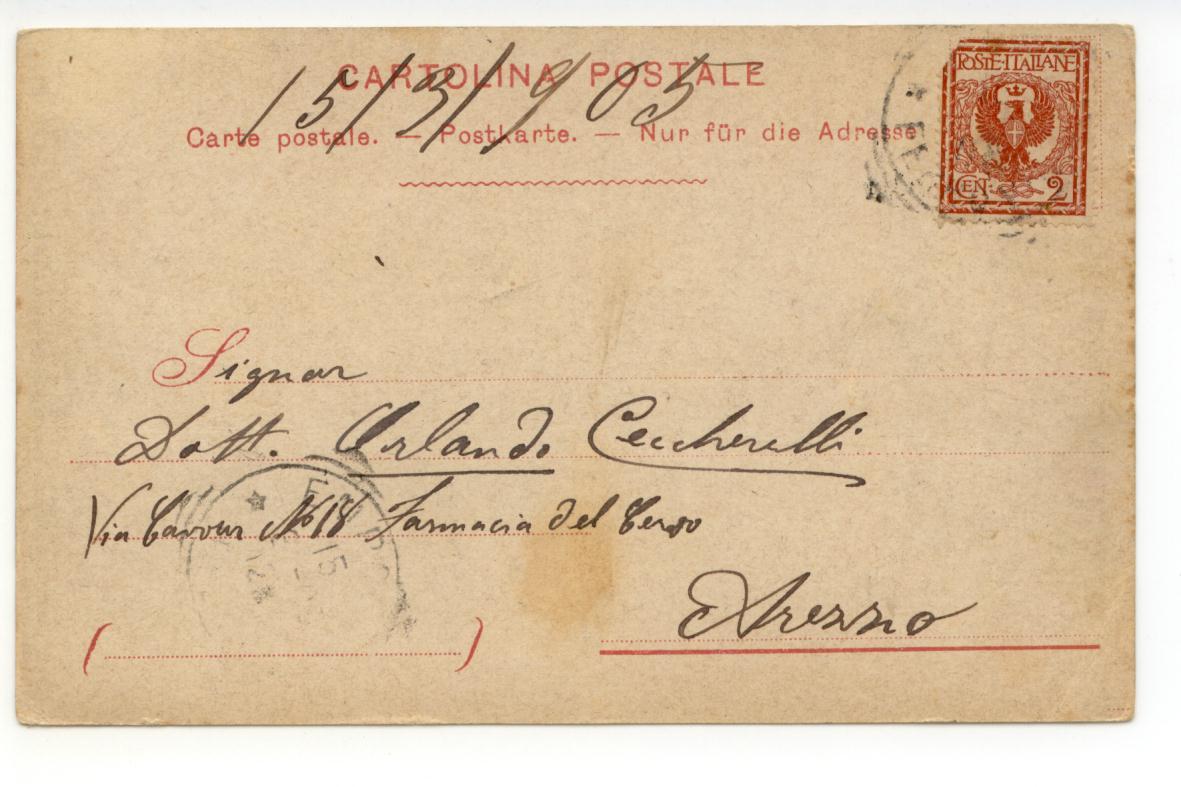 CARTOLINA POSTALE
15/3/905
Carte postale. — Postkarte. — Nur für die Adresse
POSTE·ITALIANE
CEN· 2
Signor
Dott. Orlando Ceccherelli
Via Cavour No 18 Farmacia del Cervo
Arezzo
( )
15